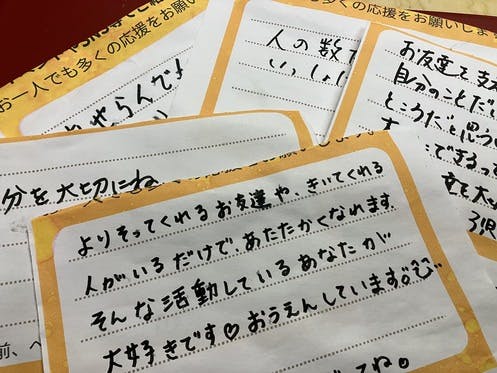 お一人でも多くの応援をお願いしま
多くの応援をお願いしま
人の数
いっしょ
お友達を支
自分のことだ
ところだと思う
できるっ
分を大切にね
前、
よりそってくれるお友達や、きいてくれる
人がいるだけで、あたたかくなれます。
そんな活動しているあなたが
大好きです♡おうえんしています
てね。